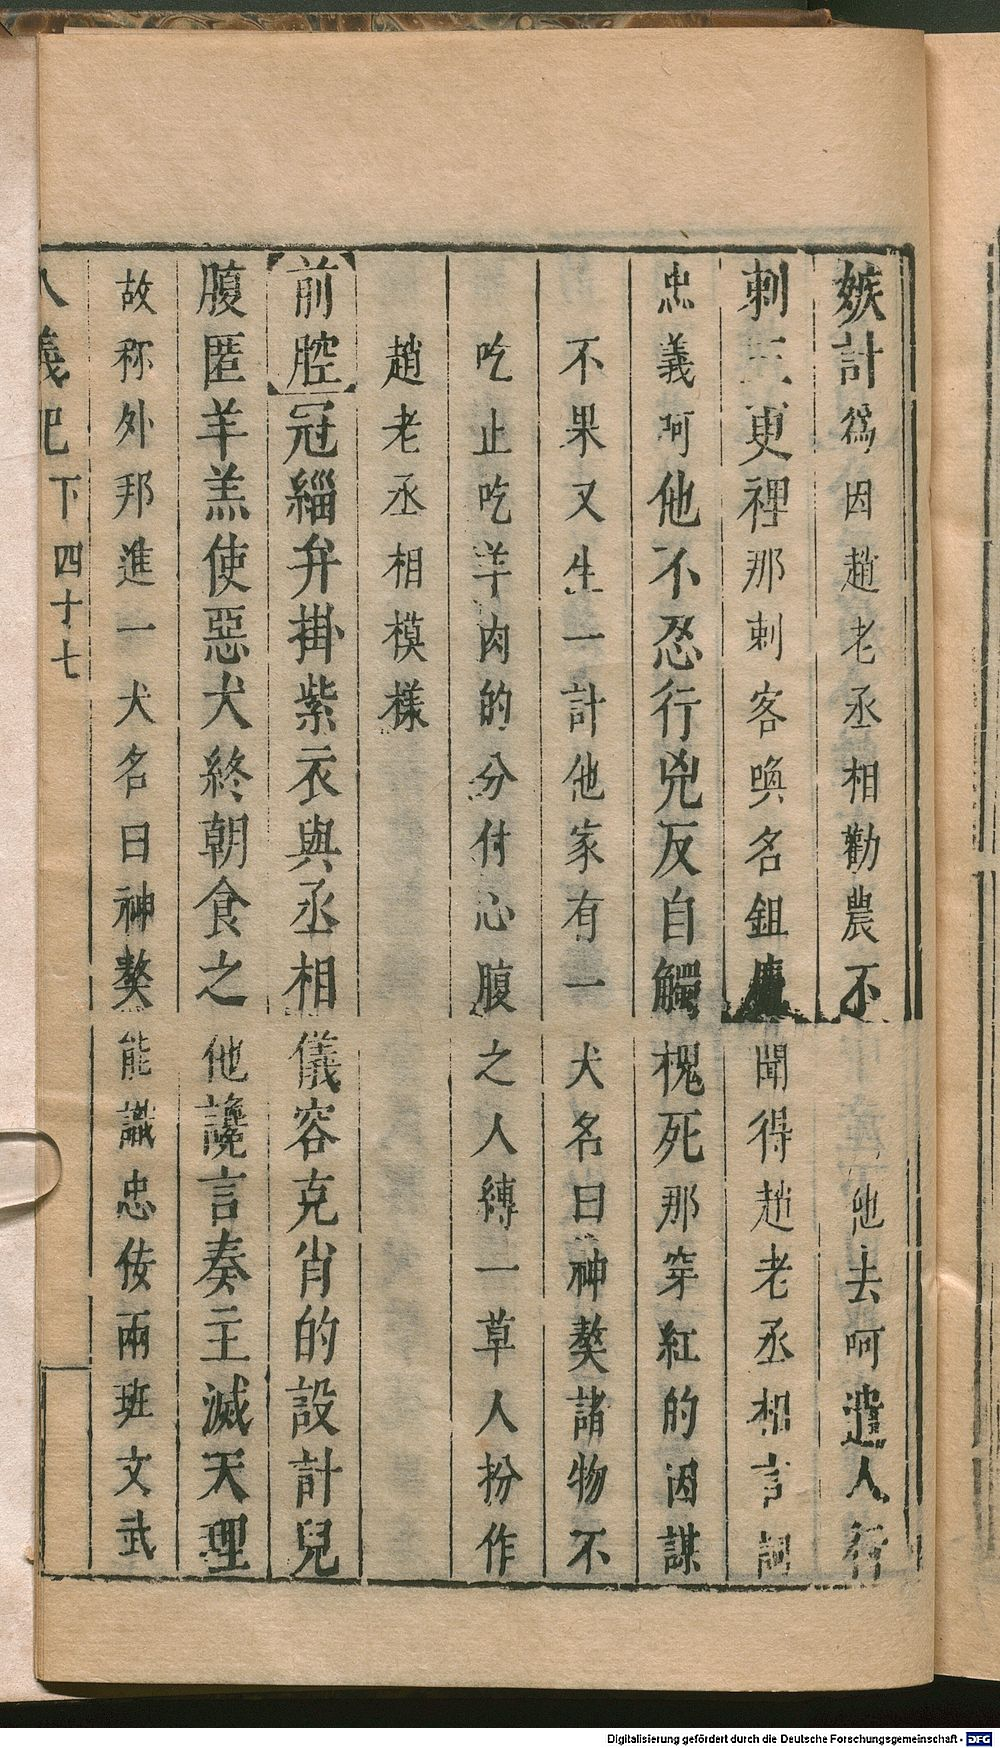 嫉計爲因趙老丞相勸農不他去呵遣人行
刺更裡那刺客喚名鉏麑聞得趙老丞相言詞
忠義呵他不忍行兇反自觸槐死那穿紅的因謀
不果又生一計他家有一犬名曰神獒諸物不
吃止吃羊肉的分付心腹之人縛一草人扮作
趙老丞相模樣
前腔冠緇弁掛紫衣與丞相儀容克肖的設計兒
腹匿羊羔使惡犬終朝食之他讒言奏主滅天理
故称外邦進一犬名曰神獒能識忠佞兩班文武
八義記下 四十七
Digitalisierung gefördert durch die Deutsche Forschungsgemeinschaft - DFG